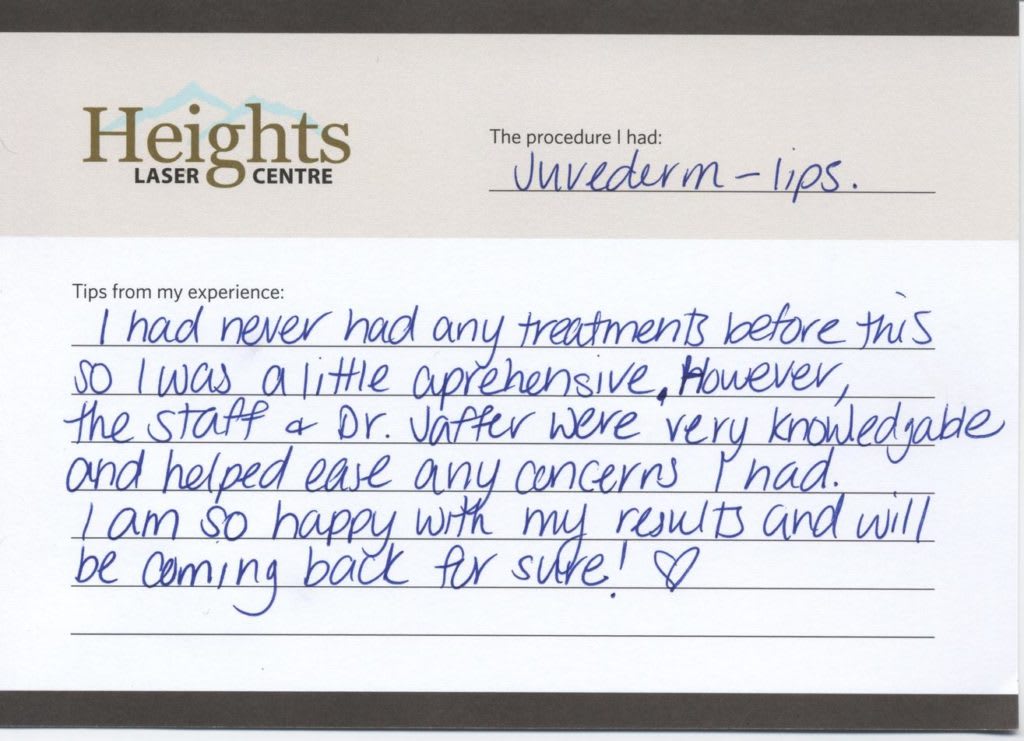 Heights
LASER CENTRE
The procedure I had:
Juvederm - lips.
Tips from my experience:
I had never had any treatments before this
so I was a little aprehensive. However,
the staff & Dr. Jaffer were very knowledgable
and helped ease any concerns I had.
I am so happy with my results and will
be coming back for sure! ♡